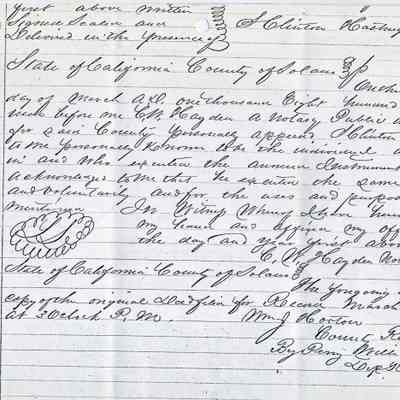 first above written
Signed Sealed and
Delivered in the presence of S Clinton Hastings
State of California County of Solano ss
On the
day of March A.D. one thousand Eight hundred
before me C. W. Hayden a Notary Public
for said County personally appeared S Clinton
to me personally known to be the individual
in and who executed the annexed Instrument
acknowledged to me that he executed the same
and voluntarily and for the uses and purposes
mentioned In Witness Whereof I have
my hand and affixed my off
the day and year first above
C. W. Hayden No
State of California County of Solano ss
The foregoing
copy of the original Deed filed for Record March
at 3 Oclock P. M. Wm J Horton
County Re
By Perry
Dep